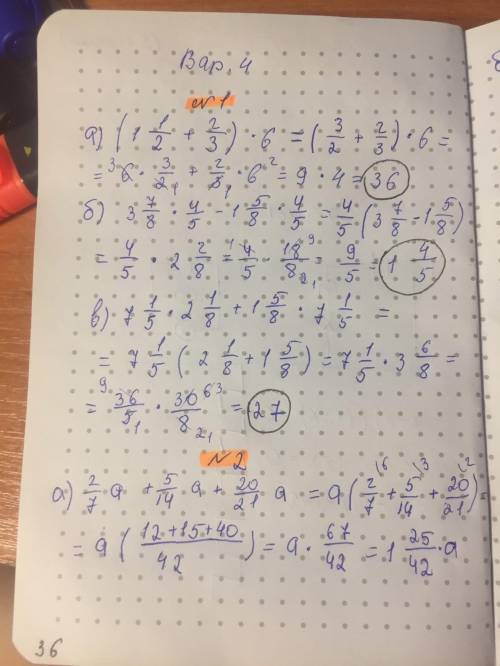 Вар. 4
№1
а) (1 1/2 + 2/3) · 6 = (3/2 + 2/3) · 6 =
= ³6 · 3/2₁ + 2/3₁ · 6² = 9 · 4 = 36
б) 3 7/8 · 4/5 - 1 5/8 · 4/5 = 4/5 (3 7/8 - 1 5/8)
= 4/5 · 2 2/8 = ¹4/5 · 18⁹/8₂₁ = 9/5 = 1 4/5
в) 7 1/5 · 2 1/8 + 1 5/8 · 7 1/5 =
= 7 1/5 (2 1/8 + 1 5/8) = 7 1/5 · 3 6/8 =
= ⁹36/5₁ · 30⁶³/8₂₁ = 27
№2
а) 2/7 a + 5/14 a + 20/21 a = a (2/7\6 + 5/14\3 + 20/21\2) =
= a (12+15+40/42) = a · 67/42 = 1 25/42 · a
36